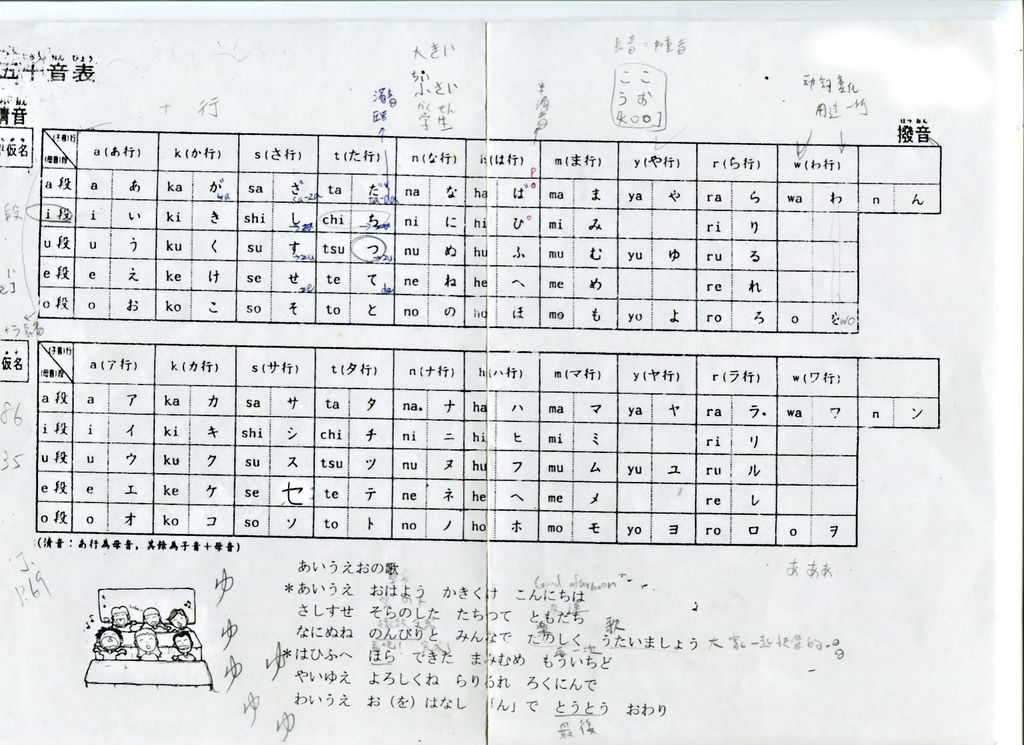 大きい
長音:加重音
小さい
ここ
うお
[koo]
五十音表
十 行
学生
清音
撥音
仮名
(子音)行
(母音)段
a(あ行) k(か行) s(さ行) t(た行) n(な行) h(は行) m(ま行) y(や行) r(ら行) w(わ行)
a段 a あ ka が sa ざ ta だ na な ha ば ma ま ya や ra ら wa わ n ん
i段 i い ki き shi し chi ち ni に hi ひ mi み ri り
u段 u う ku く su す tsu つ nu ぬ hu ふ mu む yu ゆ ru る
e段 e え ke け se せ te て ne ね he へ me め re れ
o段 o お ko こ so そ to と no の ho ほ mo も yo よ ro ろ o を wo
仮名
(子音)行
(母音)段
a(ア行) k(カ行) s(サ行) t(タ行) n(ナ行) h(ハ行) m(マ行) y(ヤ行) r(ラ行) w(ワ行)
a段 a ア ka カ sa サ ta タ na ナ ha ハ ma マ ya ヤ ra ラ wa ワ n ン
i段 i イ ki キ shi シ chi チ ni ニ hi ヒ mi ミ ri リ
u段 u ウ ku ク su ス tsu ツ nu ヌ hu フ mu ム yu ユ ru ル
e段 e エ ke ケ se セ te テ ne ネ he ヘ me メ re レ
o段 o オ ko コ so ソ to ト no ノ ho ホ mo モ yo ヨ ro ロ o ヲ
(清音:あ行為母音,其餘為子音+母音)
あ ああ
あいうえおの歌
Good afternoon
*あいうえ おはよう かきくけ こんにちは
さしすせ そらのした たちつて ともだち
歌
なにぬね のんびりと みんなで たのしく うたいましょう 大家一起快樂的
*はひふへ ほら できた まみむめ もういちど
やいゆえ よろしくね らりるれ ろくにんで
わいうえ お(を)はなし 「ん」で とうとう おわり
最後
P.69
ゆ
ゆ
ゆ
ゆ
ゆ
ゆ